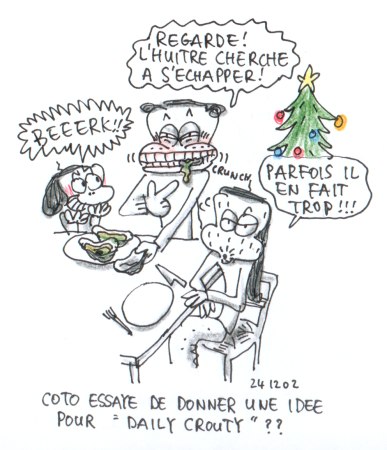 REGARDE!
L'HUITRE CHERCHE
A S'ECHAPPER!
BEEERK!!
CRUNCH
PARFOIS IL
EN FAIT
TROP!!!
241202
COTO ESSAYE DE DONNER UNE IDEE
POUR "DAILY CROUTY"??